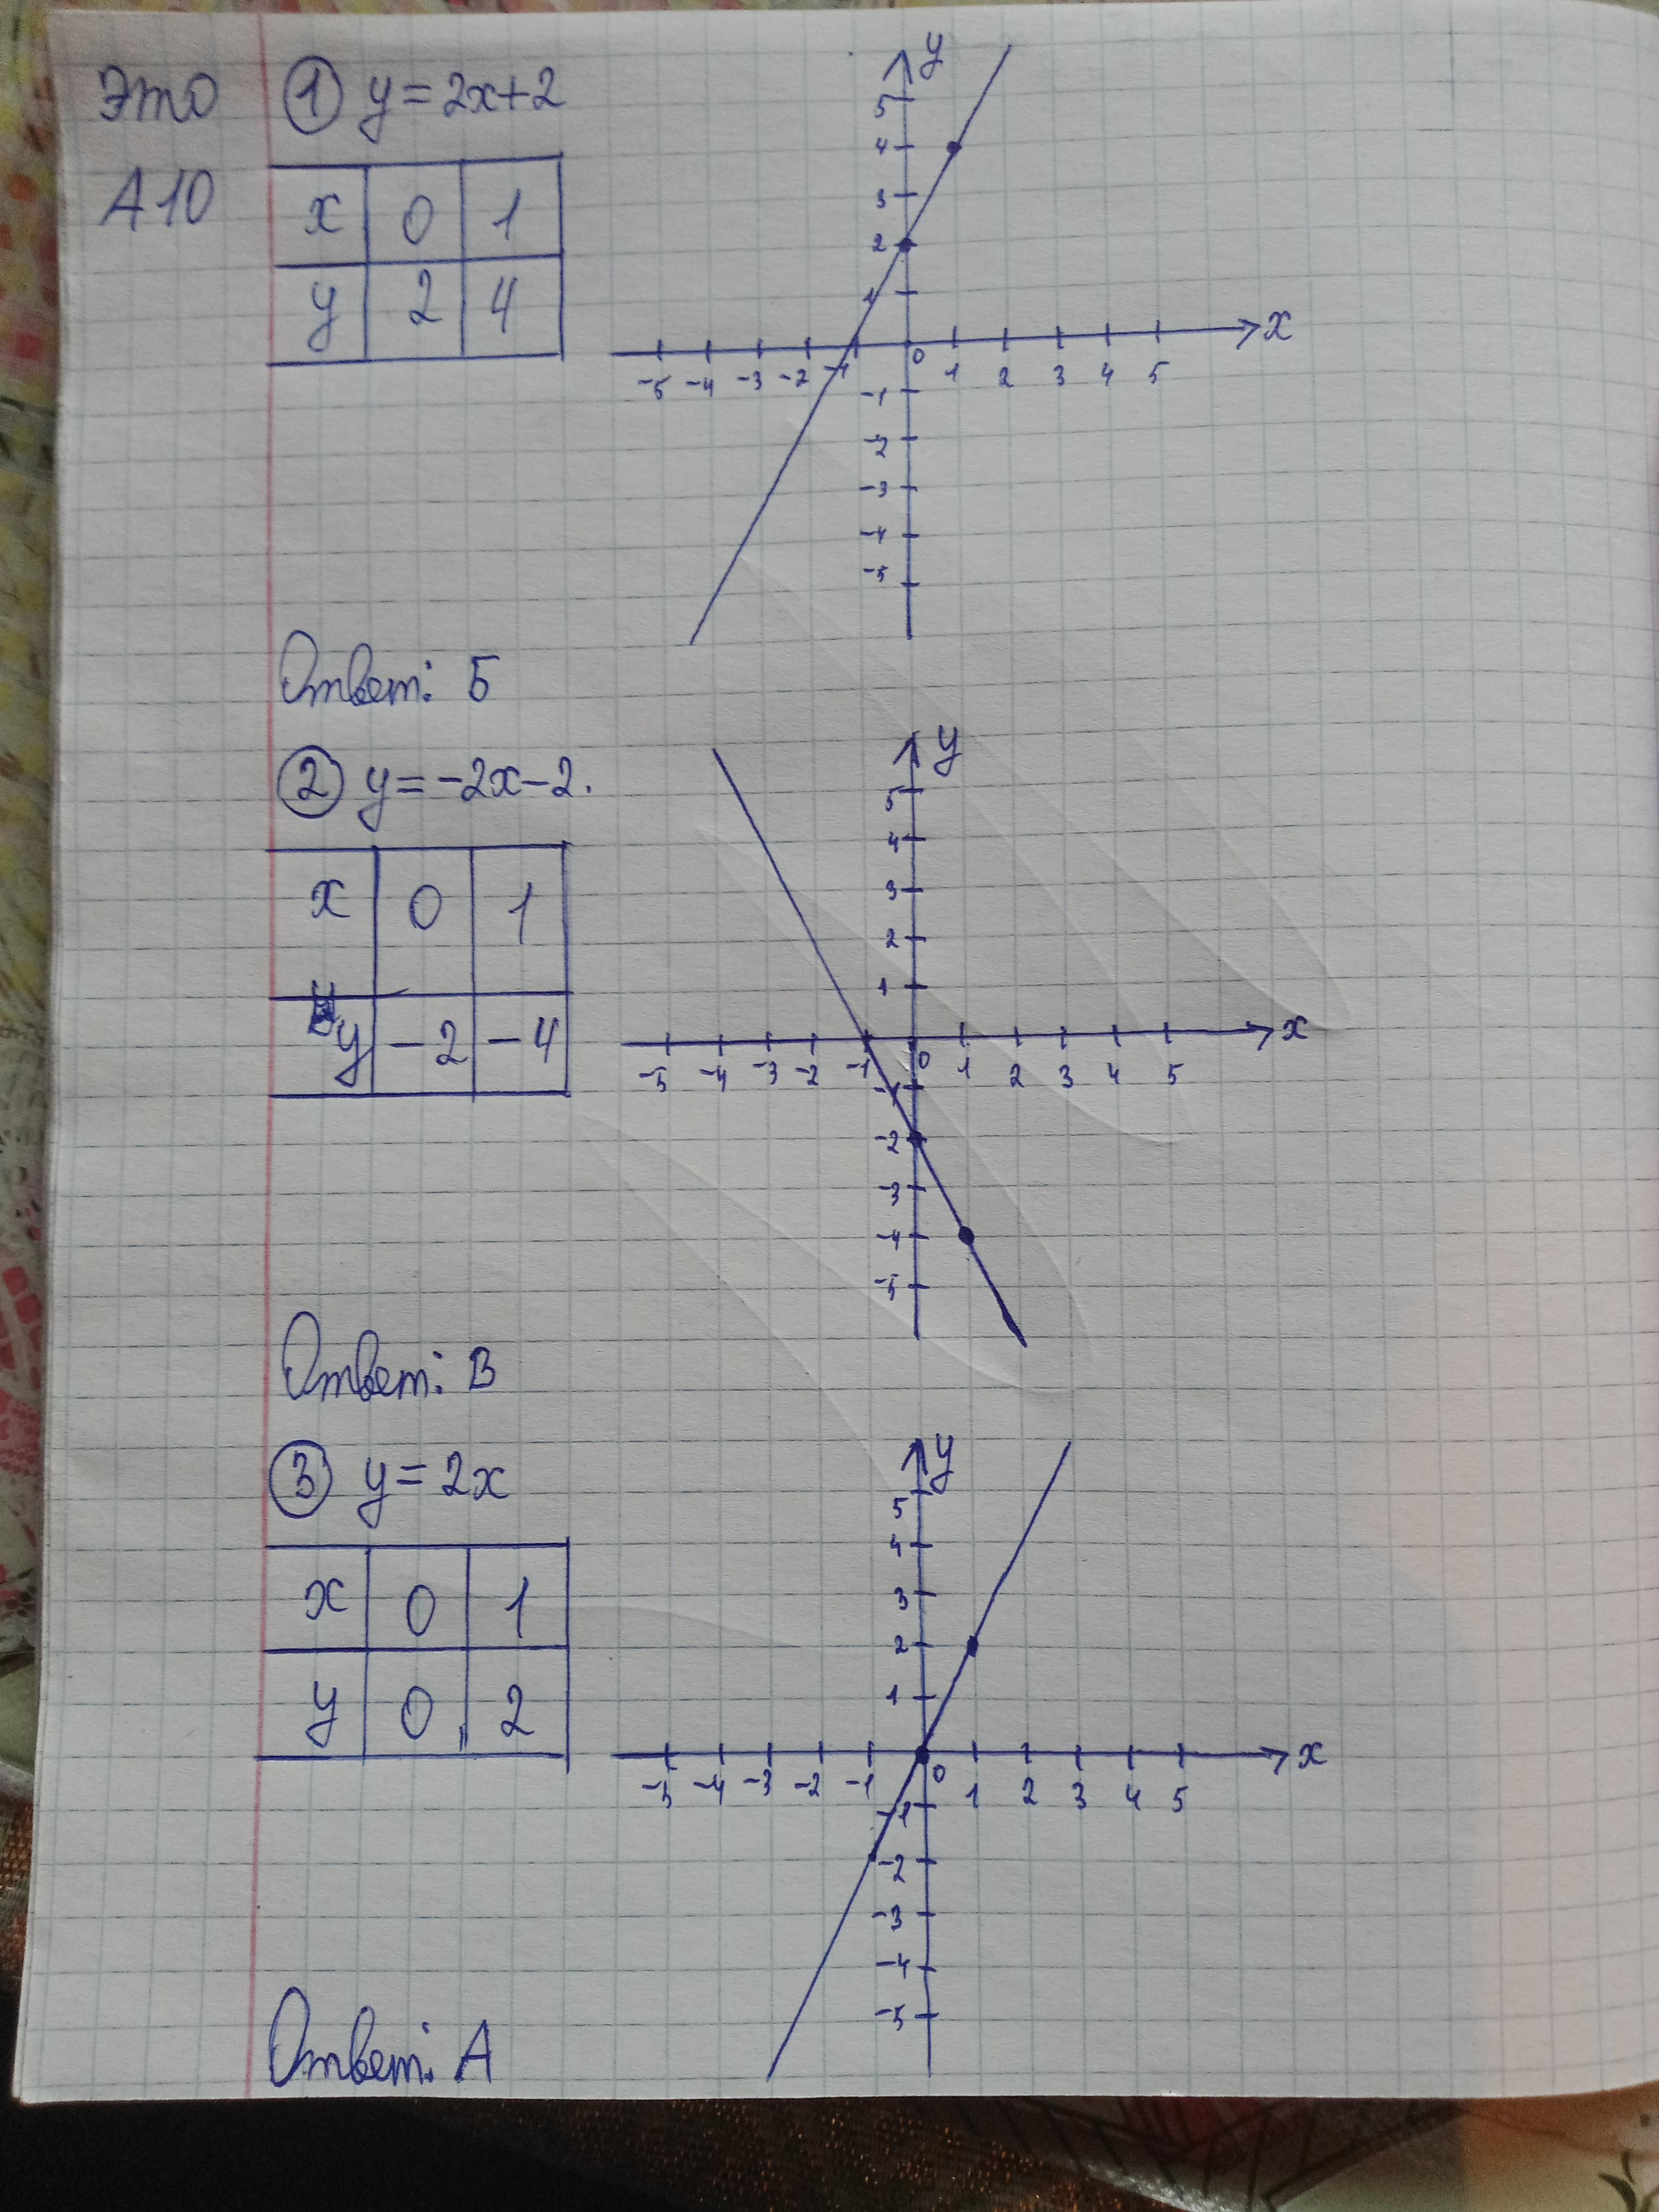 Это ① y=2x+2
А10
x 0 1
y 2 4
y
5
4
3
2
1
-5 -4 -3 -2 -1 0 1 2 3 4 5 x
-1
-2
-3
-4
-5
Ответ: Б
② y=-2x-2.
x 0 1
y -2 -4
y
5
4
3
2
1
-5 -4 -3 -2 -1 0 1 2 3 4 5 x
-1
-2
-3
-4
-5
Ответ: В
③ y=2x
x 0 1
y 0 2
y
5
4
3
2
1
-5 -4 -3 -2 -1 0 1 2 3 4 5 x
-1
-2
-3
-4
-5
Ответ: А